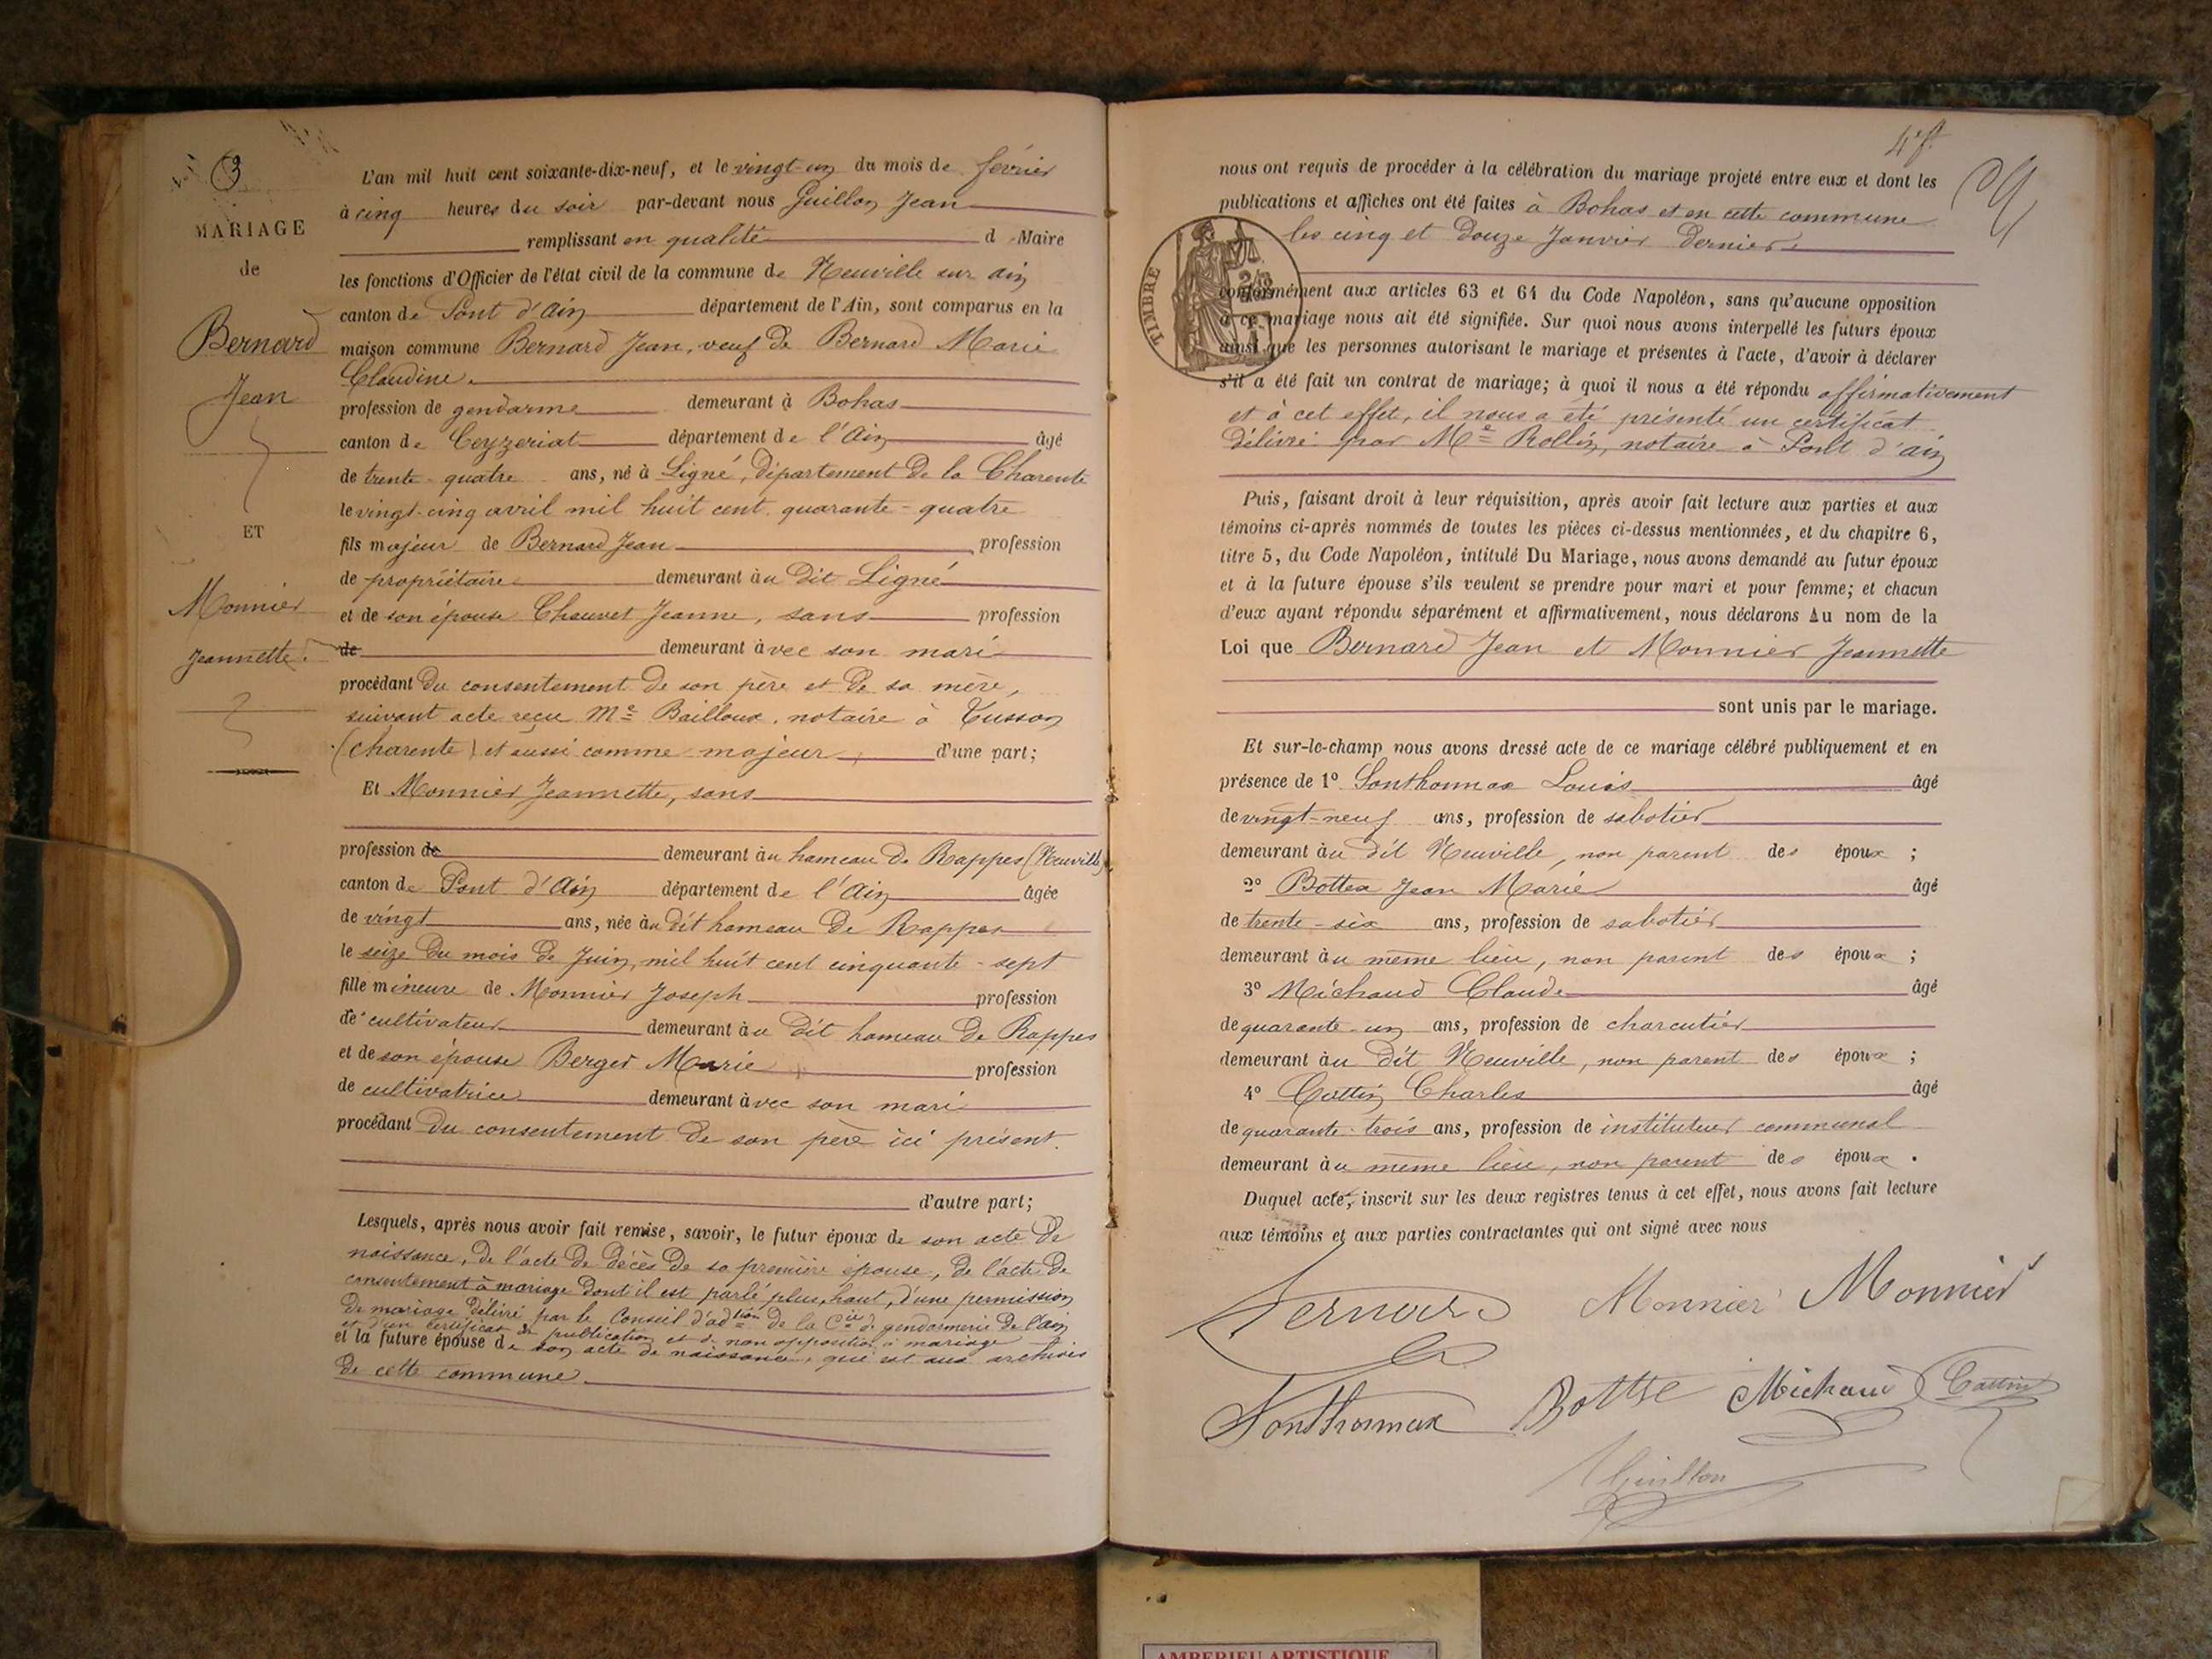 3
MARIAGE
de
Bernard
Jean
ET
Monnier
Jeannette.
L'an mil huit cent soixante-dix-neuf, et le vingt-un du mois de février
à cinq heures du soir par-devant nous Guillon Jean
remplissant en qualité d Maire
les fonctions d'Officier de l'état civil de la commune de Neuville sur ain
canton de Pont d'Ain département de l'Ain, sont comparus en la
maison commune Bernard Jean, veuf de Bernard Marie
Claudine.
profession de gendarme demeurant à Bohas
canton de Ceyzeriat département de l'Ain âgé
de trente-quatre ans, né à Ligné, département de la Charente
le vingt-cinq avril mil huit cent quarante-quatre
fils majeur de Bernard Jean profession
de propriétaire demeurant au dit Ligné
et de son épouse Chauvet Jeanne, sans profession
de demeurant avec son mari
procédant du consentement de son père et de sa mère,
suivant acte reçu Me Bailloux, notaire à Tusson
(charente) et aussi comme majeur d'une part;
Et Monnier Jeannette, sans
profession de demeurant au hameau de Rappes (Neuville)
canton de Pont d'Ain département de l'Ain âgée
de vingt ans, née au dit hameau de Rappes
le seize du mois de Juin, mil huit cent cinquante-sept
fille mineure de Monnier Joseph profession
de cultivateur demeurant au dit hameau de Rappes
et de son épouse Berger Marie profession
de cultivatrice demeurant avec son mari
procédant du consentement de son père ici présent.
d'autre part;
Lesquels, après nous avoir fait remise, savoir, le futur époux de son acte de
naissance, de l'acte de décès de sa première épouse, de l'acte de
consentement à mariage dont il est parlé plus haut, d'une permission
de mariage délivré par le Conseil d'adtion de la Cie de gendarmerie de l'ain
et d'un certificat de publication et de non opposition à mariage
et la future épouse de son acte de naissance, qui est aux archives
de cette commune
4 f.
nous ont requis de procéder à la célébration du mariage projeté entre eux et dont les
publications et affiches ont été faites à Bohas et en cette commune
les cinq et douze Janvier dernier
TIMBRE
conformément aux articles 63 et 64 du Code Napoléon, sans qu'aucune opposition
à ce mariage nous ait été signifiée. Sur quoi nous avons interpellé les futurs époux
ainsi que les personnes autorisant le mariage et présentes à l'acte, d'avoir à déclarer
s'il a été fait un contrat de mariage; à quoi il nous a été répondu affirmativement
et à cet effet, il nous a été présenté un certificat
délivré par Me Rollin, notaire à Pont d'ain
Puis, faisant droit à leur réquisition, après avoir fait lecture aux parties et aux
témoins ci-après nommés de toutes les pièces ci-dessus mentionnées, et du chapitre 6,
titre 5, du Code Napoléon, intitulé Du Mariage, nous avons demandé au futur époux
et à la future épouse s'ils veulent se prendre pour mari et pour femme; et chacun
d'eux ayant répondu séparément et affirmativement, nous déclarons Au nom de la
Loi que Bernard Jean et Monnier Jeannette
sont unis par le mariage.
Et sur-le-champ nous avons dressé acte de ce mariage célébré publiquement et en
présence de 1º Sonthonnax Louis âgé
de vingt-neuf ans, profession de sabotier
demeurant au dit Neuville, non parent des époux ;
2º Bottex Jean Marie âgé
de trente-six ans, profession de sabotier
demeurant au même lieu, non parent des époux ;
3º Michaud Claude âgé
de quarante-un ans, profession de charcutier
demeurant au dit Neuville, non parent des époux ;
4º Cattin Charles âgé
de quarante-trois ans, profession de instituteur communal
demeurant au même lieu, non parent des époux .
Duquel acte, inscrit sur les deux registres tenus à cet effet, nous avons fait lecture
aux témoins et aux parties contractantes qui ont signé avec nous
Bernard Monnier Monnier
Sonthonnax Bottex Michaud Cattin
Guillon
AMBERIEU ARTISTIQUE